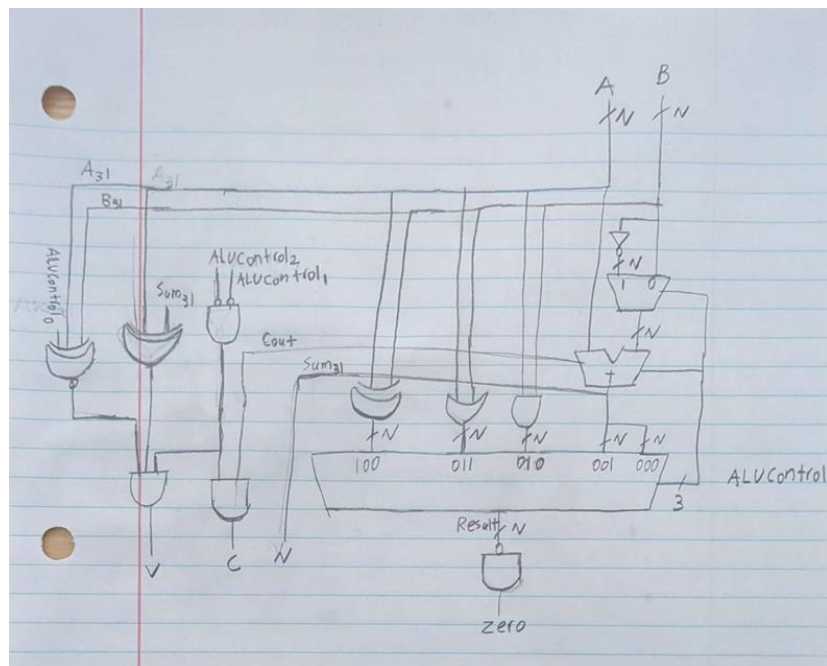 A B
N N
A31 A31
B31
ALUControl2
ALUControl1
ALUControl0
Sum31
N
1 0
Cout
N
Sum31
+
N N N N N
100 011 010 001 000
ALUControl
3
Result N
V C N
zero